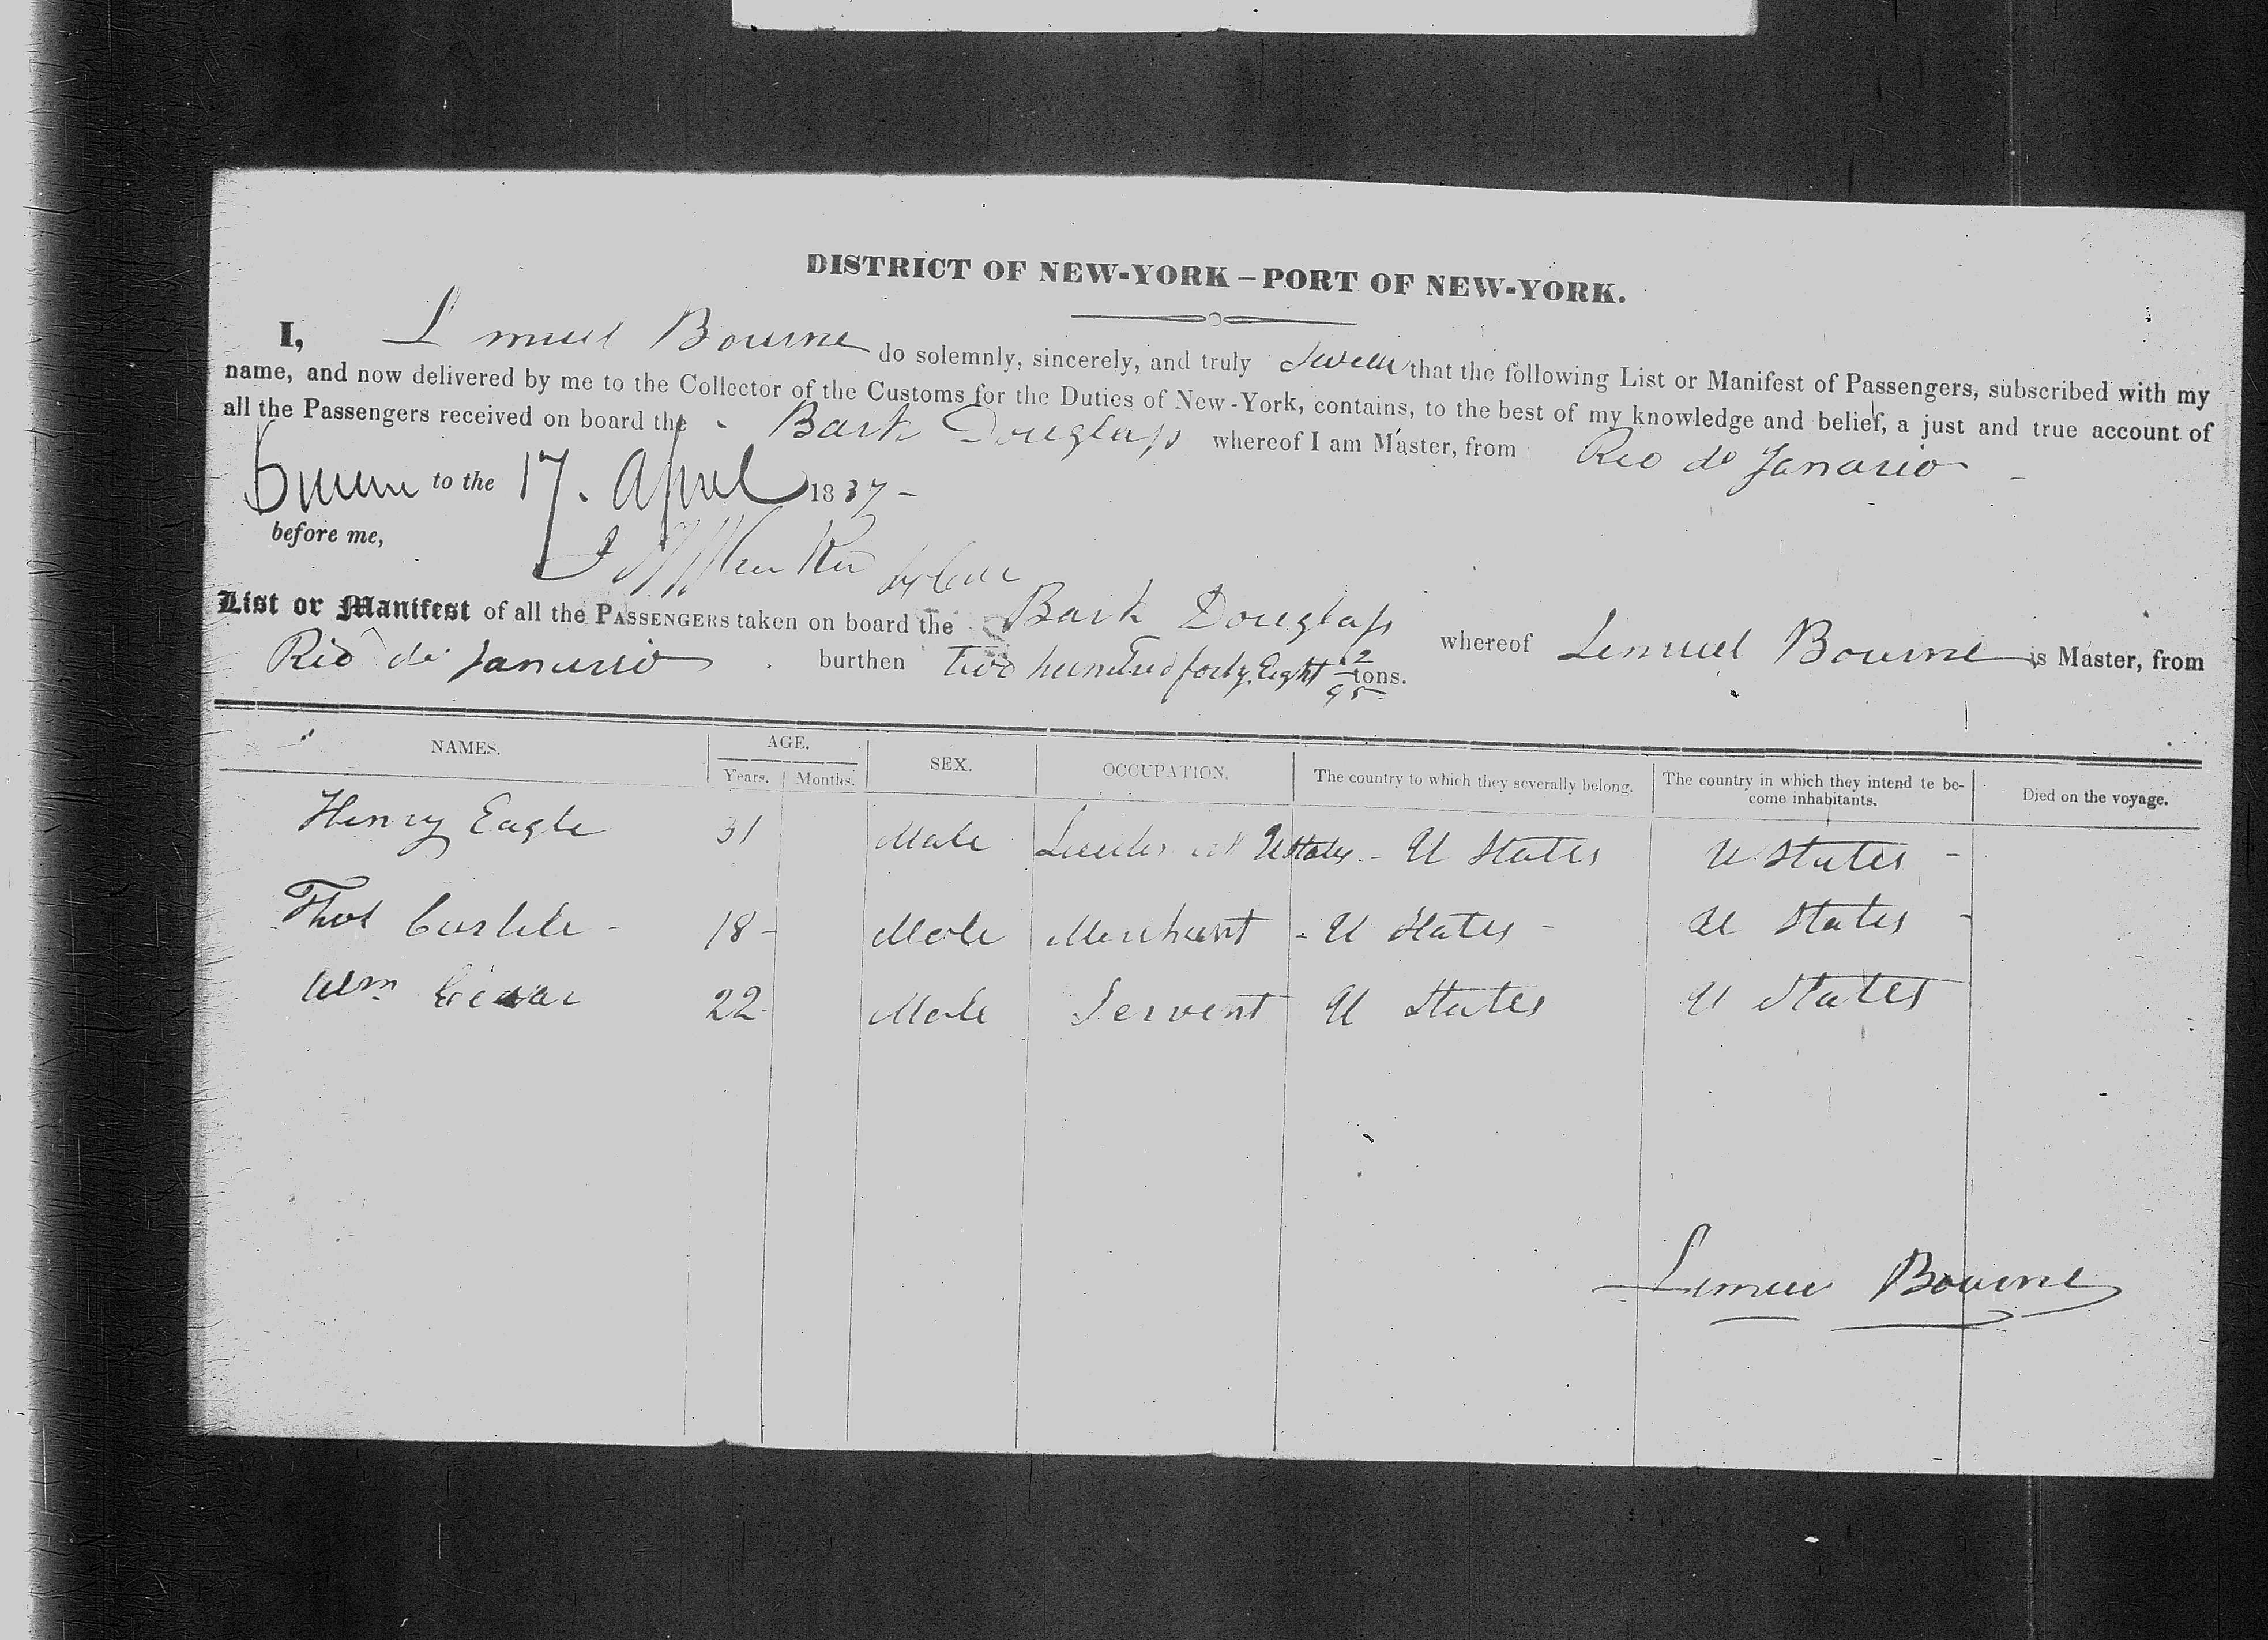 DISTRICT OF NEW-YORK – PORT OF NEW-YORK.
I, Lemuel Bourne do solemnly, sincerely, and truly Swear that the following List or Manifest of Passengers, subscribed with my
name, and now delivered by me to the Collector of the Customs for the Duties of New-York, contains, to the best of my knowledge and belief, a just and true account of
all the Passengers received on board the Bark Douglass whereof I am Master, from Rio de Janario
Sworn to the 17. April 1837 -
before me,
List or Manifest of all the PASSENGERS taken on board the Bark Douglass whereof Lemuel Bourne is Master, from
Rio de Janario burthen two hundred forty Eight 12/95 tons.
NAMES. AGE. SEX. OCCUPATION. The country to which they severally belong. The country in which they intend te be-
come inhabitants. Died on the voyage.
Years. Months.
Henry Eagle 31 Male U States - U States U States -
Thos Carlile - 18 - Male Merchant - U States - U States -
Wm 22 Male Servent U States U States
Lemuel Bourne